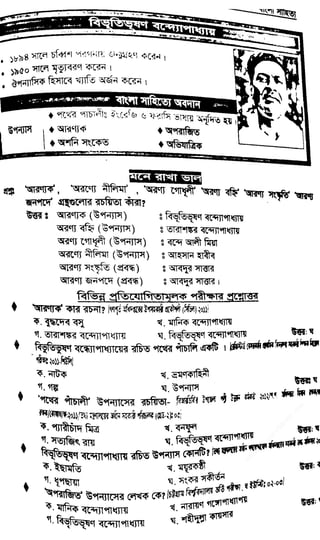 বাংলা সাহিত্য
বিভূতিভূষণ বন্দ্যোপাধ্যায়
১৮৯৪ সালে চব্বিশ পরগনায় জন্মগ্রহণ করেন।
১৯৫০ সালে মৃত্যুবরণ করেন।
ঔপন্যাসিক হিসাবে খ্যাতি অর্জন করেন।
বাংলা সাহিত্যে অবদান
পথের পাচালীঃ ইংরেজি ও ফরাসি ভাষায় অনূদিত হয়।
উপন্যাস
আরণ্যক
অপরাজিত
অশনি সংকেত
অভিযাত্রিক
মনে রাখা ভাল
প্রশ্ন 'আরণ্যক', 'অরণ্যে নীলিমা', 'অরণ্যে গোধূলী' 'অরণ্য বহ্নি' 'আরণ্য সংস্কৃতি' 'আরণ্য
জনপদে' গ্রন্থগুলোর রচয়িতা কাঁরা?
উত্তর ঃ আরণ্যক (উপন্যাস) ঃ বিভূতিভূষণ বন্দ্যোপাধ্যায়
অরণ্য বহ্নি (উপন্যাস) ঃ তারাশঙ্কর বন্দ্যোপাধ্যায়
অরণ্য গোধূলী (উপন্যাস) ঃ বন্দে আলী মিয়া
অরণ্যে নীলিমা (উপন্যাস) ঃ আহসান হাবীব
আরণ্য সংস্কৃতি (প্রবন্ধ) ঃ আবদুর সাত্তার
আরণ্য জনপদে (প্রবন্ধ) ঃ আবদুর সাত্তার।
বিভিন্ন প্রতিযোগিতামূলক পরীক্ষার প্রশ্নোত্তর
'আরণ্যক' কার রচনা?
ক. বুদ্ধদেব বসু খ. মানিক বন্দ্যোপাধ্যায়
গ. তারাশঙ্কর বন্দ্যোপাধ্যায় ঘ. বিভূতিভূষণ বন্দ্যোপাধ্যায় উত্তর: ঘ
বিভূতিভূষণ বন্দ্যোপাধ্যায়ের রচিত পথের পাঁচালি একটি।
ক. নাটক খ. ভ্রমণকাহিনী
গ. গল্প ঘ. উপন্যাস উত্তর: ঘ
'পথের পাঁচালী' উপন্যাসের রচয়িতা-
ক. প্যারীচাঁদ মিত্র খ. বনফুল
গ. সত্যজিৎ রায় ঘ. বিভূতিভূষণ বন্দ্যোপাধ্যায় উত্তর: ঘ
বিভূতিভূষণ বন্দ্যোপাধ্যায় রচিত উপন্যাস কোনটি?
ক. ইছামতি খ. ময়ূরকণ্ঠী
গ. ধূপছায়া ঘ. সংকর সংকীর্তন উত্তর: ক
'অপরাজিত' উপন্যাসের লেখক কে?
ক. মানিক বন্দ্যোপাধ্যায় খ. নারায়ণ গঙ্গোপাধ্যায়
গ. বিভূতিভূষণ বন্দ্যোপাধ্যায় ঘ. শহীদুল্লা কায়সার উত্তর: